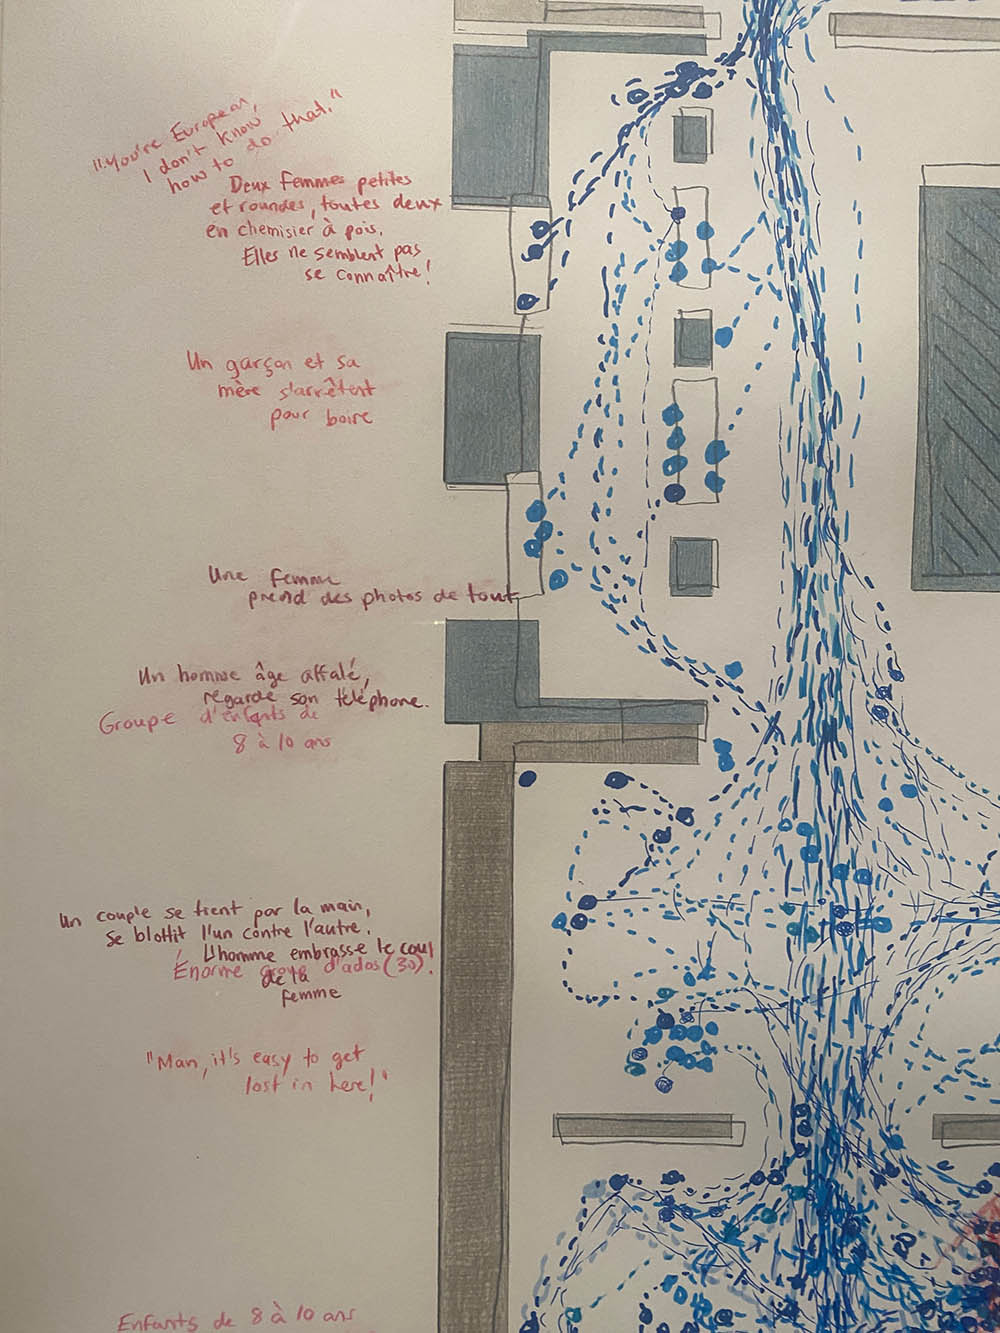 "You're European,
I don't know
how to do that."
Deux femmes petites
et roundes, toutes deux
en chemisier à pois.
Elles ne semblent pas
se connaître!
Un garçon et sa
mère s'arrêtent
pour boire
Une femme
prend des photos de tout
Un homme âge affalé,
regarde son téléphone.
Groupe d'enfants de
8 à 10 ans
Un couple se tient par la main,
se blottit l'un contre l'autre.
L'homme embrasse le cou
de la
femme
Énorme groupe d'ados (30).
"Man, it's easy to get
lost in here!"
Enfants de 8 à 10 ans